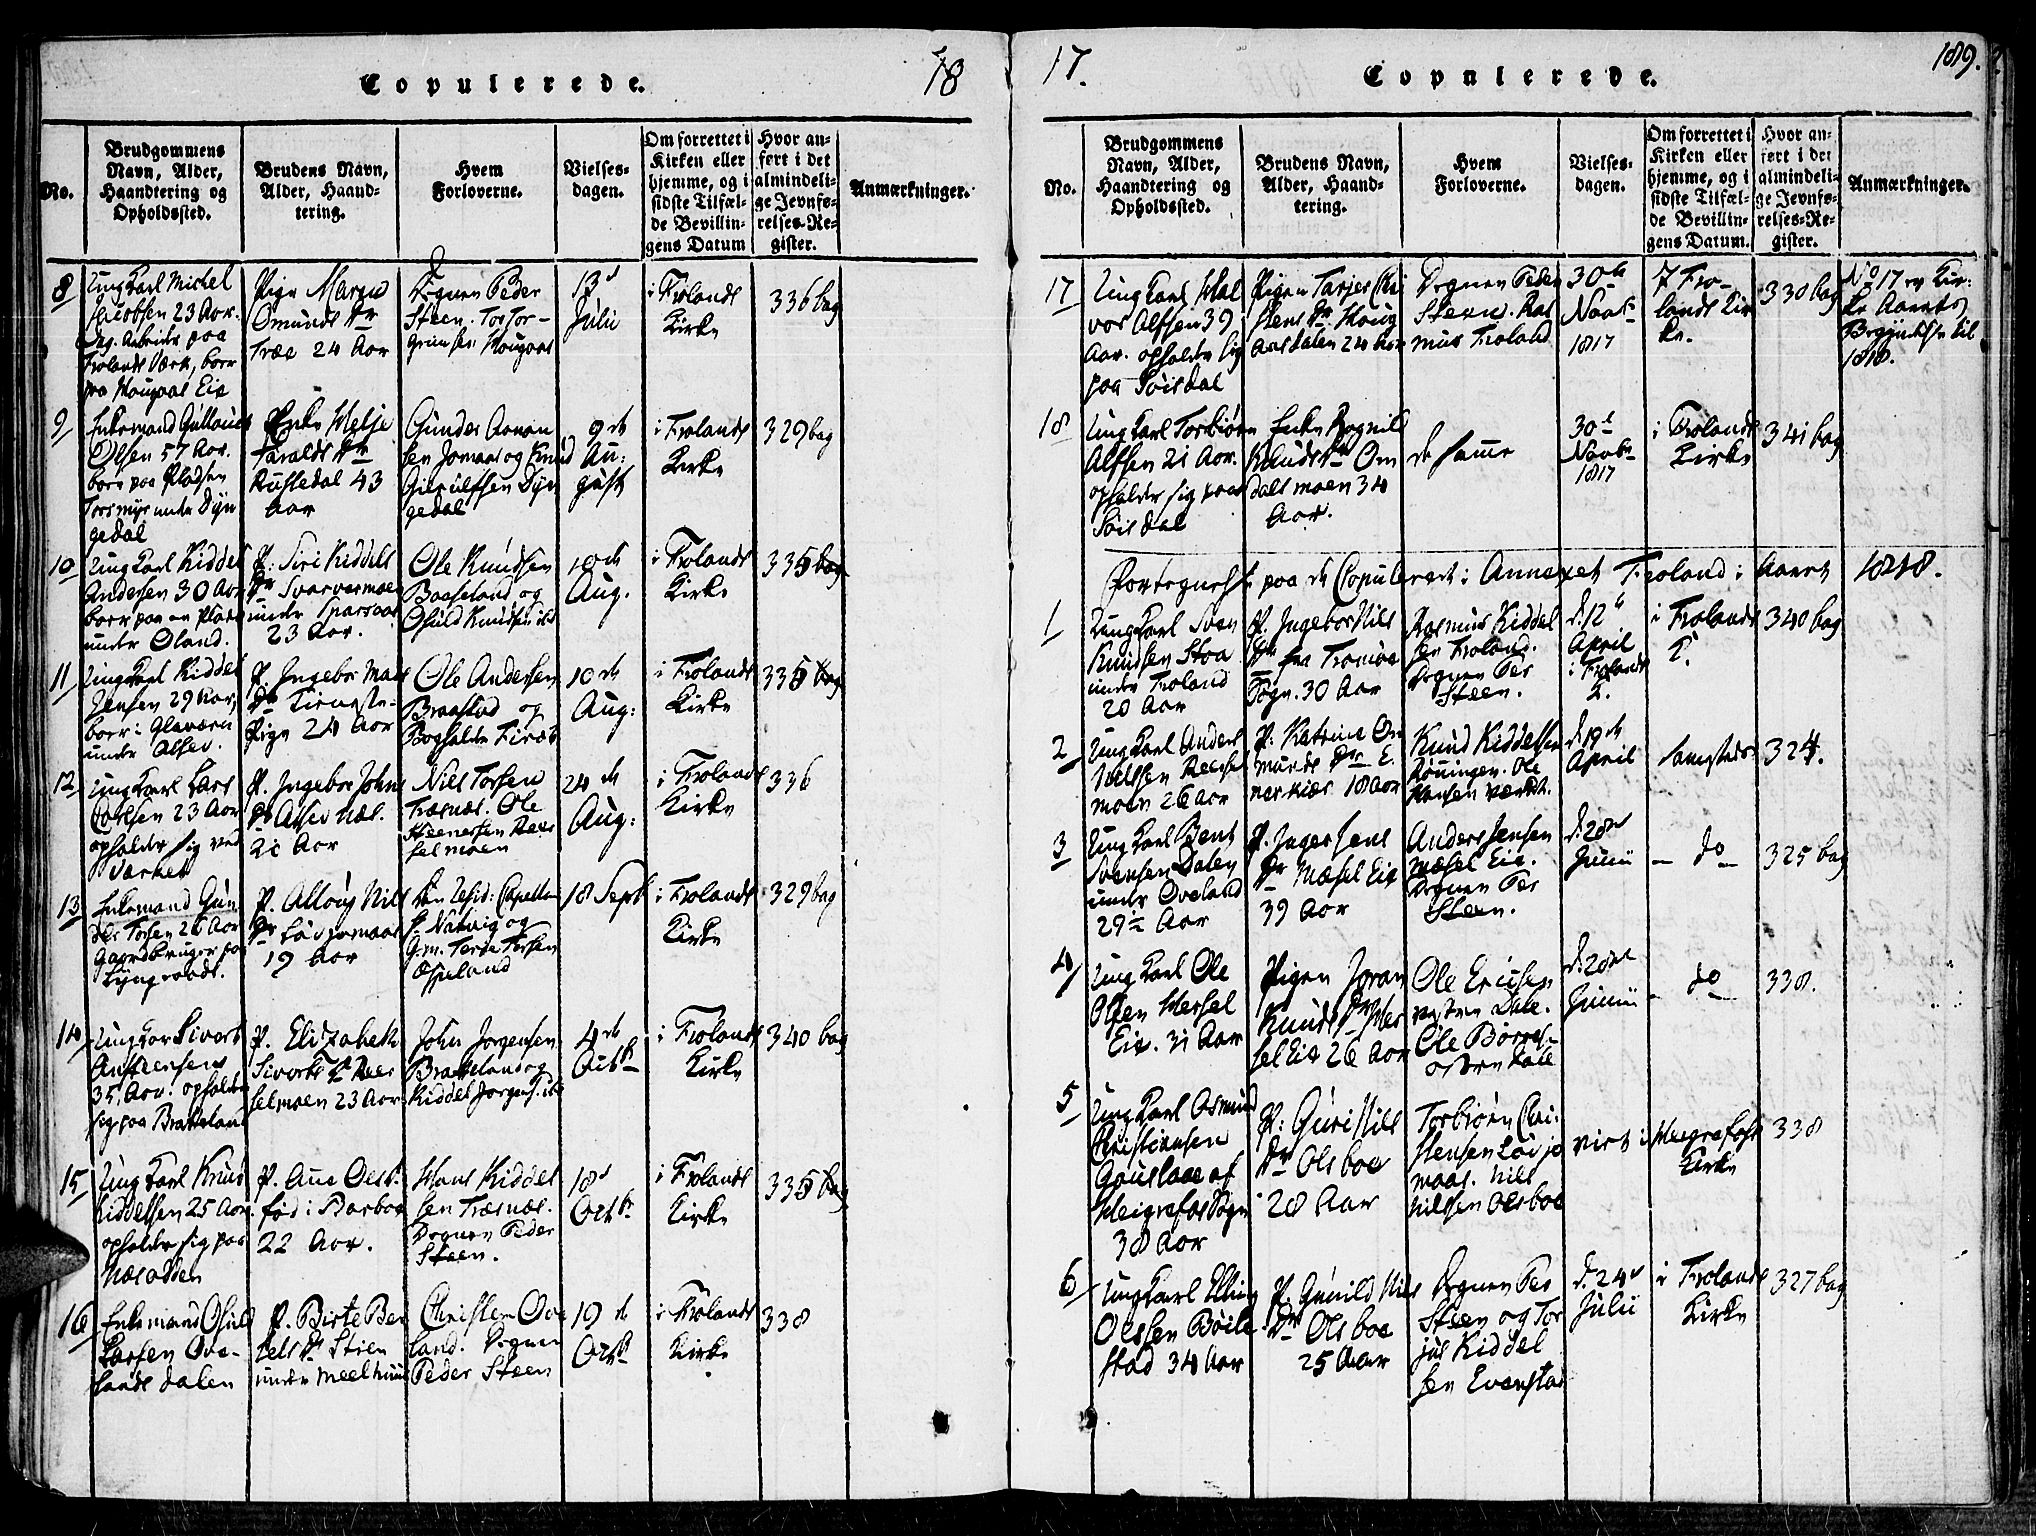 Copulerede.
18
No.
Brudgommens
Navn, Alder,
Haandtering og
Opholdssted.
Brudens Navn,
Alder, Haand-
tering.
Hvem
Forloverne.
Vielses-
dagen.
Om forrettet i
Kirken eller
hjemme, og i
sidste Tilfæl-
de Bevillin-
gens Datum
Hvor an-
ført i det
almindeli-
ge Jevnfø-
relses-Re-
gister.
Anmærkninger.
8
Ung Karl Michel
Jacobsen 23 Aar.
Dag. Arbeider paa
Frolands Værk, boer
paa Hougaas Eie
Pige Maren
Omunds Dr
Træe 24 Aar
Degnen Peder
Steen. Tor Tor-
grimsen Hougaas
13d
Julii
i Frolands
Kirke
336 bag
9
Enkemand
Olsen 57 Aar.
boer paa Pladsen
Torsmyr under Dyn
gedal
Enke
Haralds Dr
Rustedal 43
Aar
Gunder Aanon
sen Jomaas og Knud
Dyn
gedal
9de
Au:
gusti
i Frolands
Kirke
329 bag
10
Ung Karl Kiddel
Andersen 30 Aar
boer paa en Plads
under Øland.
P. Siri Kiddels
Dr Svarvermoen
under
23 Aar.
Ole Knudsen
Baaseland og
Osuld Knudsen ibid
10de
Aug.
i Frolands
Kirke
335 bag
11
Ung Karl Kiddel
Jensen 29 Aar,
boer i
under Alsev.
P. Ingebor Mads
Dr
Pige 24 Aar
Ole Andersen
Braastad og
Bogholder
10de
Aug:
i Frolands
Kirke
335 bag
12
Ung Karl Lars
Carlsen 23 Aar
opholder sig ved
Værket
P. Ingebor Johns
Dr
21 Aar
Niels Torsen
Træsnæs. Ole
Steenersen Reer
selmoen
24de
Aug:
i Frolands
Kirke
336
13
Enkemand Gun
der Torsen 26 Aar
Gaardbruger paa
Lyngraade.
P. Nils
Dr Løvjomaas
19 Aar
Den resid: Capellan
H. Natvig og
Torsen
Espeland
18 Sept
i Frolands
Kirke
329 bag
14
Ung Kar Sivort
Austeensen
35 Aar. opholder
sig paa Bratteland
P. Elizabeth
Sivorts Dr Reer
selmoen 23 Aar
John Jorgensen
Brattelandog
Kiddel Jorgens. ib
4de
Octbr
i Frolands
Kirke
340 bag
15
Ung Karl Knud
Kiddelsen 25 Aar
opholder sig paa
Næsodden
P. Ane
fød i Barboe
22 Aar.
Hans Kiddel
sen Træsnæs.
Degnen Peder
Steen.
18d
Octbr
i Frolands
Kirke
335 bag
16
Enkemand Osuld
Larsen Ove-
lands dalen
P. Birte Ber
tels Dr Stien
under
Christen Ove
land. Degnen
Peder Steen
19de
Octbr
i Frolands
Kirke
338
17.
Copulerede.
189.
No.
Brudgommens
Navn, Alder,
Haandtering og
Opholdssted.
Brudens Navn,
Alder, Haand-
tering.
Hvem
Forloverne.
Vielses-
dagen.
Om forrettet i
Kirken eller
hjemme, og i
sidste Tilfæl-
de Bevillin-
gens Datum.
Hvor an-
ført i det
almindeli-
ge Jevnfø-
relses-Re-
gister.
Anmærkninger.
17
Ung Karl Hal
vor Alfsen 39
Aar. opholder sig
paa Søisdal
Pigen Tarjer Chri
stens Dr Houg
aasdalen 24 Aar
Degnen Peder
Steen. Ras
mus Froland
30te
Novbr
1817
i Fro-
lands Kir
ke.
330 bag
No 17 er Kir-
ke Aarets
Begyndelse til
1818.
18
Ung Karl Torbiørn
Alfsen 21 Aar.
opholder sig paa
Søisdal
Enke Rognil
Knuds Dr Om
dalsmoen 34
Aar.
de samme
30te
Novbr
1817
i Frolands
Kirke
341 bag
Fortegnelse paa de Copulerede i Annexet Froland i Aaret 1818.
1
Ung Karl Sven
Knudsen Stoa
under Froland
20 Aar
P. Ingebor Nils
Dr fra Tromøe
Sogn. 30 Aar
Rasmus Kiddel
sen Froland.
Degnen Per
Steen.
d. 12te
April
i Frolands
K.
i Frolands
K.
340 bag
2
Ung Karl Anders
Nielsen Reersel
moen 26 Aar
P. Katrine Om
munds Dr E.
neskiær 18 Aar
Knud Kiddelsen
Rønningen. Ole
Hansen Værket.
d. 19de
April
samesteds
324.
3
Ung Karl Bent
Svensen Dalen
under Oveland
29½ Aar
P. Inger Jens
Dr Mæsel Eie
39 Aar
Anders Jensen
Mæsel Eie.
Degnen Per
Steen.
d. 28de
Junii
do
325 bag
4
Ung Karl Ole
Olsen Messel
Eie. 31 Aar
Pigen Joran
Knuds Dr Mes
sel Eie 26 Aar
Ole Ericsen
vestre Dale.
Ole
østre Dale
d. 28de
Junii
do
338.
5
Ung Karl Osmund
Christiansen
Gouslaae af
Heigrefos Sogn
38 Aar
P: Guri Nils
Dr Olsboe
28 Aar
Torbiørn Chri-
stensen Løvjo
maas. Nils
Nilsen Olsboe
viet i
Heigrefos
Kirke
338
6
Ung Karl Elling
Olssen Bøile
stad 34 Aar
P. Gunild Nils
Dr Olsboe
25 Aar
Degnen Per
Steen og Tor
jus Kiddel
sen Evenstad
d. 24d
Julii
i Frolands
Kirke
327 bag